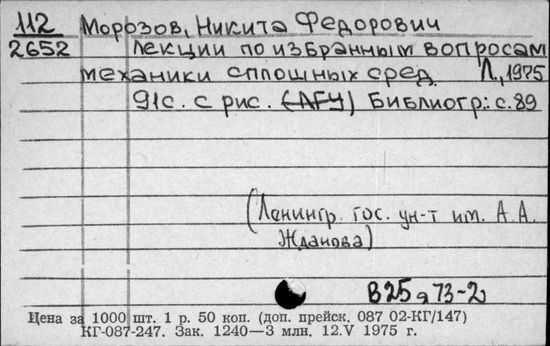 112
2652
Морозов, Никита Федорович
Лекции по избранным вопросам
механики сплошных сред. Л., 1975
91с. с рис. (ЛГУ) Библиогр: с.89
(Ленингр. гос. ун-т им. А.А.
Жданова)
В25я73-2
Цена за 1000 шт. 1 р. 50 коп. (доп. прейск. 087 02-КГ/147)
КГ-087-247. Зак. 1240—3 млн. 12.V 1975 г.